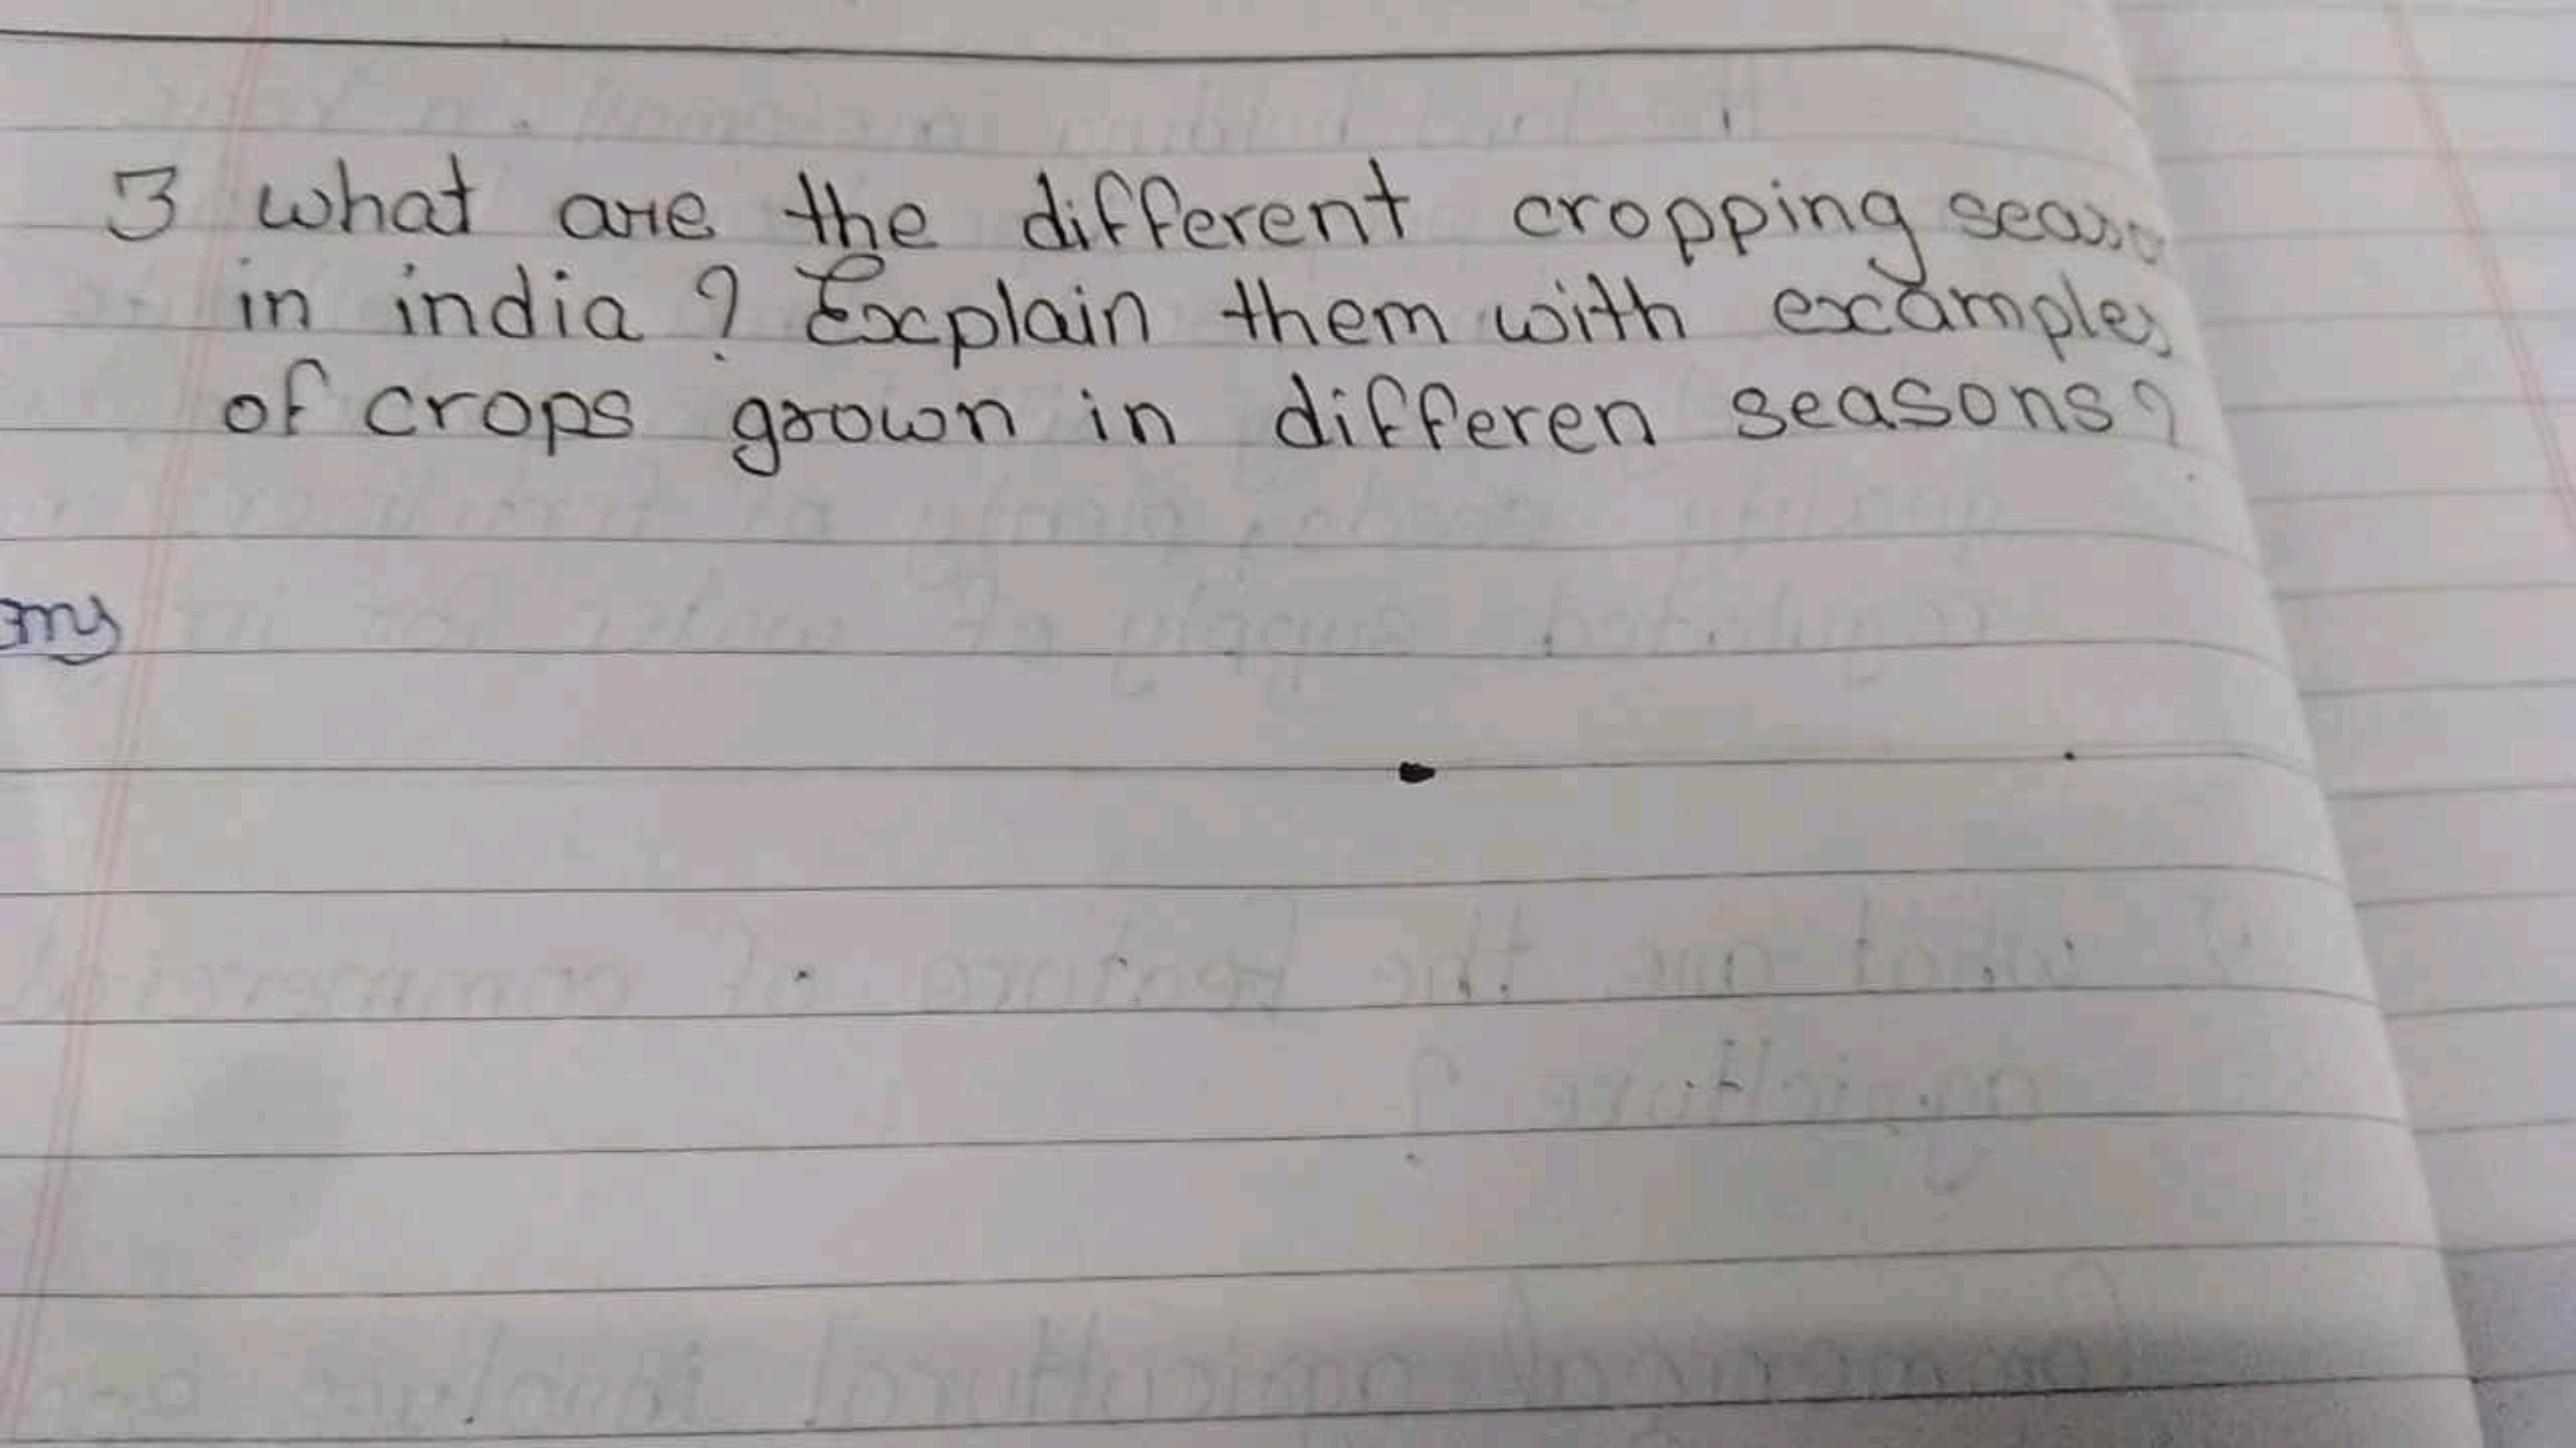 3 what are the different cropping seaso
in india ? Explain them with examples
of crops grown in differen seasons?